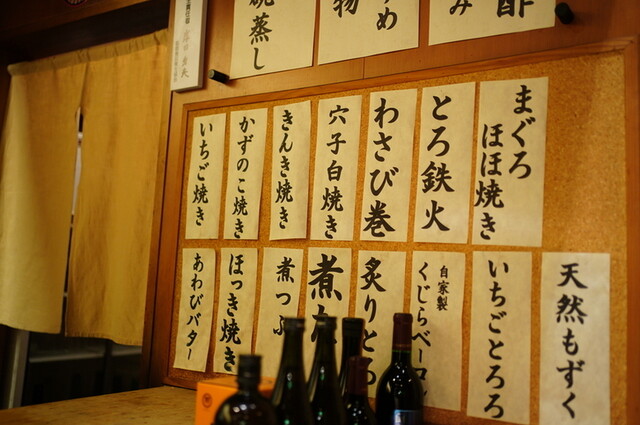 酢
み
め
物
蒸し
まぐろ
ほほ焼き
とろ鉄火
わさび巻
穴子白焼き
きんき焼き
かずのこ焼き
いちご焼き
天然もずく
いちごとろろ
自家製
くじらベーコン
炙りとろ
煮
煮つぶ
ほっき焼き
あわびバター